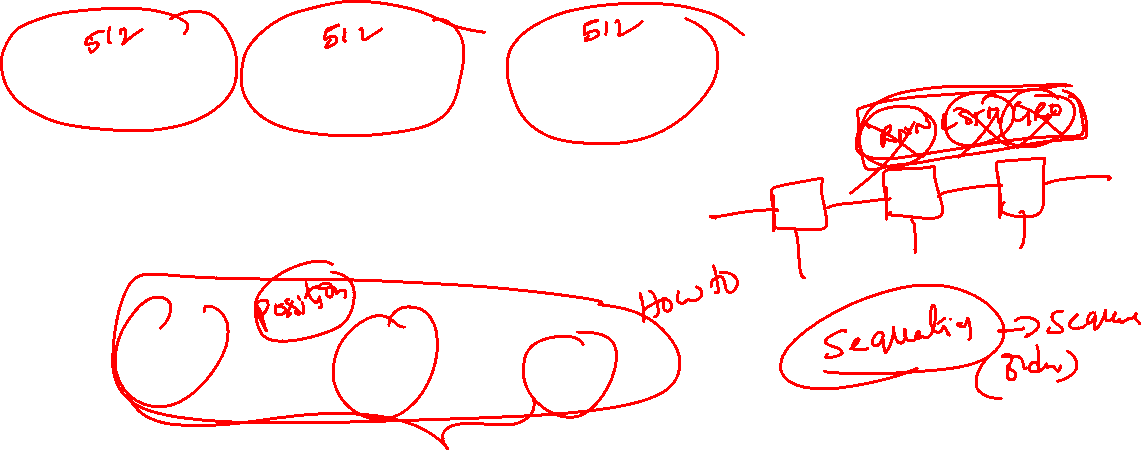 512 512 512
RNN LSTM GRU
Position
How to
Sequeting → Seque
(order)